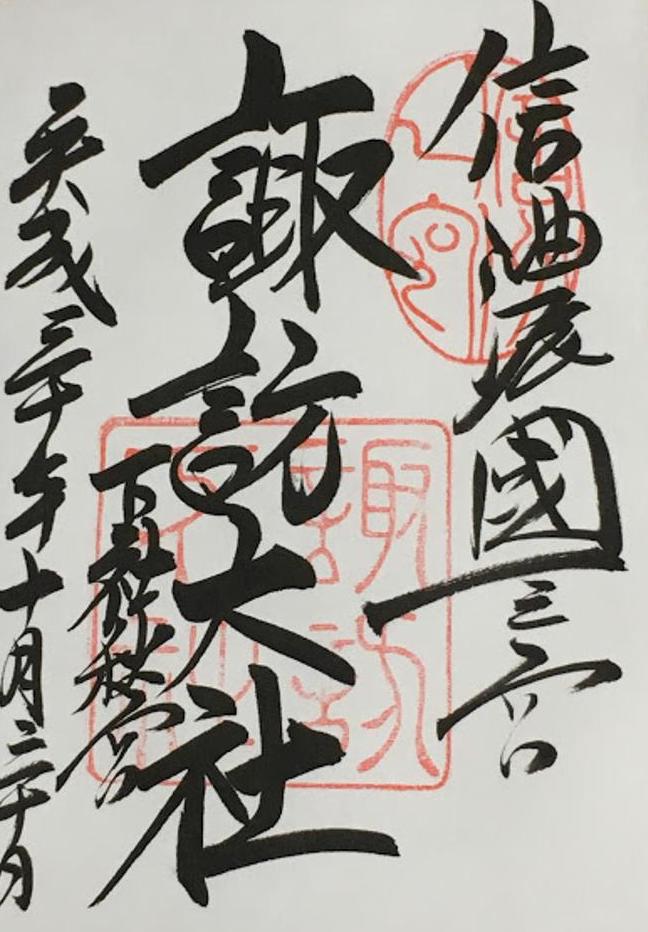 信濃國一之宮
諏訪大社
下社秋宮
平成三十年十月二十日